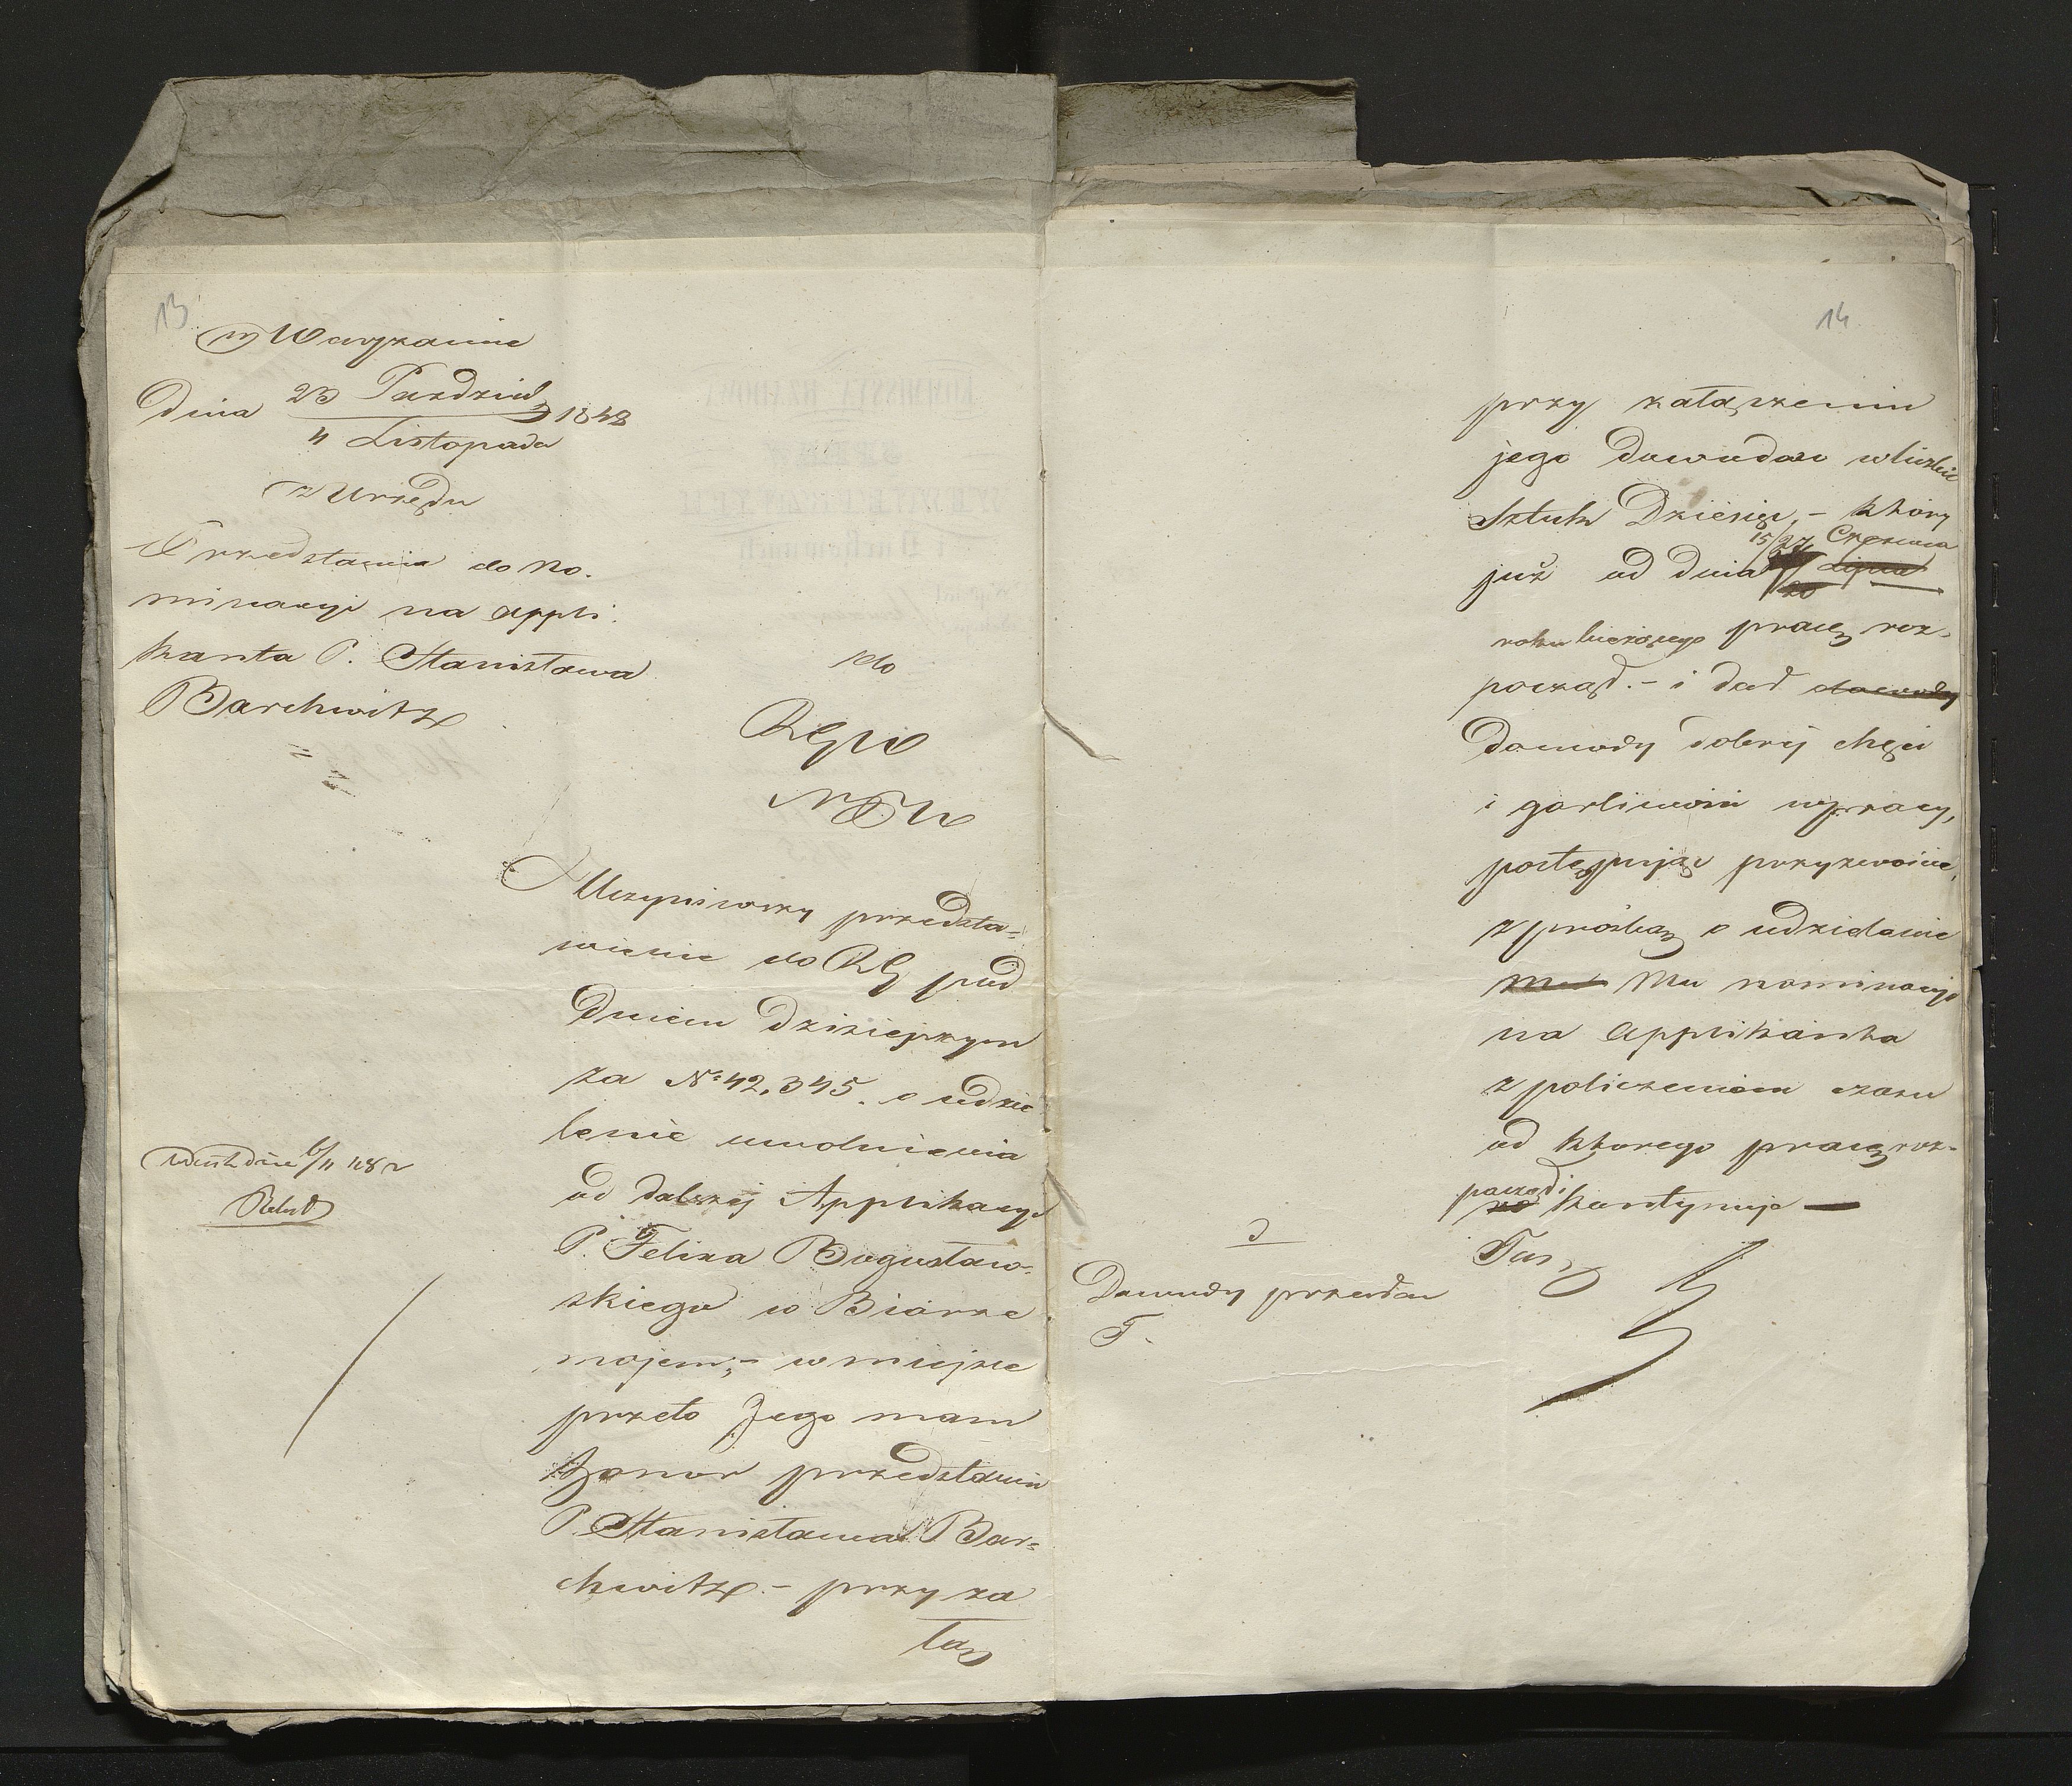 13
w Warszawie
Dnia 23 Paździer / 4 Listopada 1848
z Urzędu
Przedstawia do no-
minacyi na appli-
kanta P. Stanisława
Barchwitz
do
RGW
Uczyniwszy przedsta-
wienie do RG pod
Dniem dzisiejszym
za No 42,345. o udzie
lenie uwolnienia
od dalszej Applikacyi
P. Felixa Bogusław-
skiego w Biórze
mojem,- w miejsce
przeto Jego mam
honor przedstawić
P. Stanisława Bar-
chwitz.- przy za
łąc
14
przy załączeniu
jego dowodów w liczbie
Sztuk Dziesięć,- który
15/27 Czerwca
już od dnia Lipca
roku bieżącego pracę roz-
począł.- i dał dowody
Dowody dobrej chęci
i gorliwości w pracy,
postępując przyzwoicie,
z prośbą o udzielenie
Mu nominacyi
na Applikanta
z policzeniem czasu
od którego pracę roz-
począł i
kontynuje —
Dowody przesłać
T.